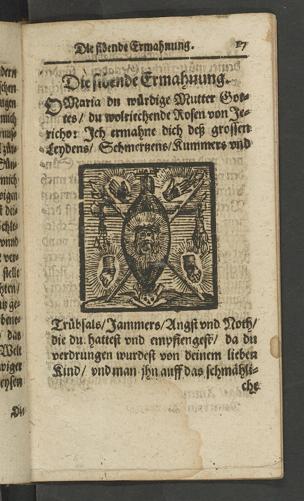 Die sibende Ermahnung. 17
Die sibende Ermahnung.
O Maria du würdige Mutter Got-
tes/ du wolriechende Rosen von Je-
richo: Jch ermahne dich deß grossen
Leydens/ Schmertzens/ Kummers vnd
Trübsals/ Jammers/ Angst vnd Noth/
die du hattest vnd empfiengest/ da du
verdrungen wurdest von deinem lieben
Kind/ vnd man jhn auff das schmähli-
che